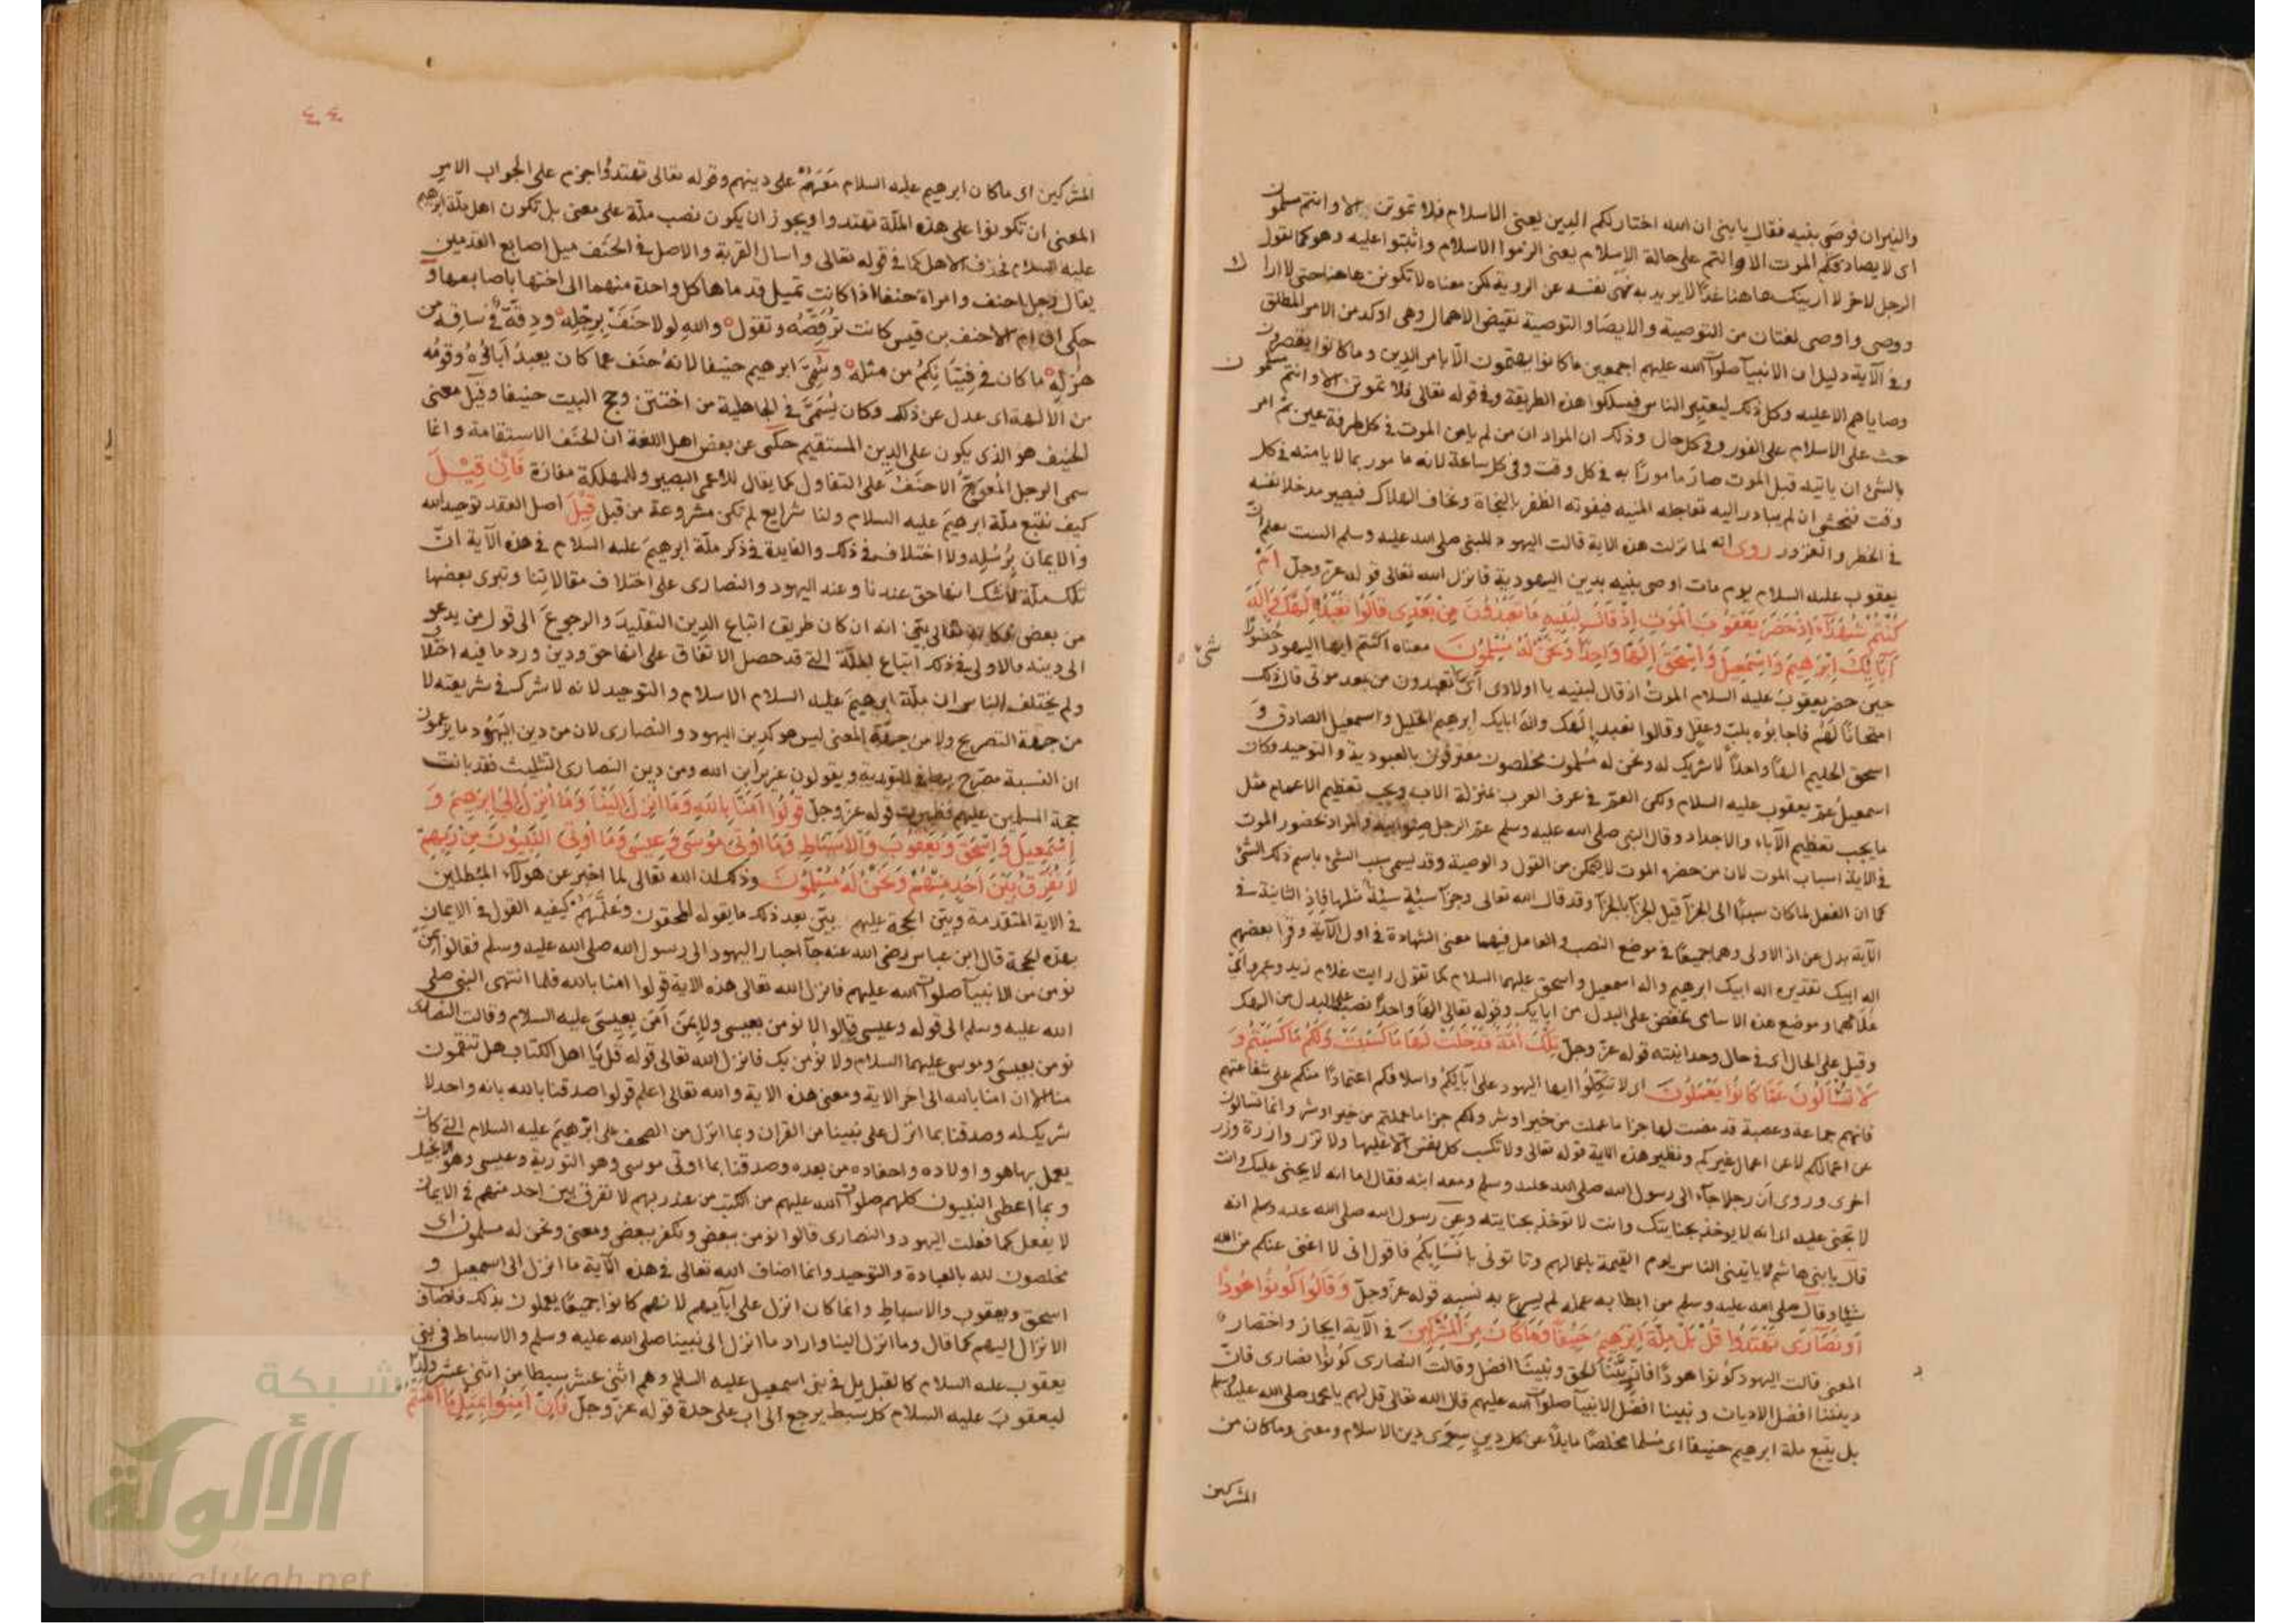 والنيران فوصى بنيه فقال يا بني ان الله اختار لكم الدين يعني الاسلام فلا تموتن الا وانتم مسلمون
اى لا يصادفكم الموت الا وانتم على حالة الاسلام يعني الزموا الاسلام واثبتوا عليه وهو كما تقول
الرجل لاخر لا ارينك هاهنا غدًا لا يريد به نهى نفسه عن الروية لكن معناه لا تكونن هاهنا حتى لا اراك
ووصى واوصى لغتان من التوصية والايصا والتوصية نقيض الاهمال وهى اوكد من الامر المطلق
وفي الآية دليل ان الانبيآ صلوات الله عليهم اجمعين ما كانوا يهتمون الّا بامر الدين وما كانوا يقصرون
وصاياهم الا عليه وكل ذلك ليعتبر الناس فيسلكوا هذه الطريقة وفي قوله تعالى فلا تموتن الا وانتم مسلمون
حث على الاسلام على الفور وفي كل حال وذلك ان المراد ان من لم يامن الموت في كل طرفة عين ثم امر
بالشئ ان ياتيه قبل الموت صار مامورًا به في كل وقت وفي كل ساعة لانه مامور بما لا يامنه في كل
وقت فنخشى ان لم يبادر اليه تعاجله المنيه فيفوته الظفر بالنجاة ونخاف الهلاك فيصير مدخلا نفسه
في الخطر والغرور روى انه لما نزلت هذه الاية قالت اليهود للنبي صلى الله عليه وسلم الست تعلم ان
يعقوب عليه السلام يوم مات اوصى بنيه بدين اليهودية فانزل الله تعالى قوله عزّ وجلّ اَمْ
كُنْتُمْ شُهَدَآءَ اِذْ حَضَرَ يَعْقُوبَ الْمَوْتُ اِذْ قَالَ لِبَنِيهِ مَا تَعْبُدُونَ مِنْ بَعْدِى قَالُوا نَعْبُدُ اِلٰهَكَ وَاِلٰهَ
آبَآئِكَ اِبْرٰهِيمَ وَاِسْمٰعِيلَ وَاِسْحٰقَ اِلٰهًا وَاحِدًا وَنَحْنُ لَهُ مُسْلِمُونَ معناه اكنتم ايها اليهود حضورًا
حين حضر يعقوب عليه السلام الموتُ اذ قال لبنيه يا اولادى اىّ شىء تعبدون من بعد موتى قال ذلك
امتحانًا لهم فاجابوه بلب وعقل وقالوا نعبد إلهك واله ابايك ابرهيم الخليل واسمعيل الصادق و
اسحق الحليم الهًا واحدًا لا شريك له ونحن له مسلمون مخلصون معترفون بالعبودية والتوحيد وكان
اسمعيل عمّ يعقوب عليه السلام ولكن العمّ في عرف العرب بمنزلة الاب ويجب تعظيم الاعمام مثل
ما يجب تعظيم الآباء والاجداد وقال النبي صلى الله عليه وسلم عمّ الرجل صنو ابيه والمراد بحضور الموت
في الاية اسباب الموت لان من حضره الموت لا يتمكن من القول والوصية وقد يسمى سبب الشئ باسم ذلك الشئ
كما ان الفعل لما كان سببًا الى الجزآ قيل للجزآ بالجزآ وقد قال الله تعالى وجزآ سيئةٍ سيئةٌ مثلها فاِذِ الثانية في
الآية بدل عن اذ الاولى وهما جميعًا في موضع النصب والعامل فيهما معنى الشهادة في اول الآية وقرا بعضهم
اله ابيك تقديره اله ابيك ابرهيم واله اسمعيل واسحق عليهما السلام كما تقول رايت غلام زيد وعمرو اىّ
غلامهما وموضع هذه الاسامى خفض على البدل من ابايك وقوله تعالى الهًا واحدًا نصب على البدل من الهك
وقيل على الحال اى في حال وحدانيته قوله عزّ وجلّ تِلْكَ اُمَّةٌ قَدْ خَلَتْ لَهَا مَا كَسَبَتْ وَلَكُمْ مَا كَسَبْتُمْ وَ
لَا تُسْأَلُونَ عَمَّا كَانُوا يَعْمَلُونَ اى لا تتكلوا ايها اليهود على آبايكم واسلافكم اعتمادًا منكم على شفاعتهم
فانهم جماعة وعصبة قد مضت لها جزا ما عملت من خير او شر ولكم جزا ما عملتم من خير او شر وانما تسالون
عن اعمالكم لا عن اعمال غيركم ونظير هذه الاية قوله تعالى ولا تكسب كل نفس الّا عليها ولا تزر وازرة وزر
اخرى وروى ان رجلا جآء الى رسول الله صلى الله عليه وسلم ومعه ابنه فقال اما انه لا يجنى عليك وانت
لا تجنى عليه اى انه لا يوخذ بجنايتك وانت لا توخذ بجنايته وعن رسول الله صلى الله عليه وسلم انه
قال يا بني هاشم لا ياتيني الناس يوم القيمة باعمالهم وتاتونى بانسابكم فاقول انى لا اغنى عنكم من الله
شيئا وقال صلى الله عليه وسلم من ابطا به عمله لم يسرع به نسبه قوله عزّ وجلّ وَقَالُوا كُونُوا هُودًا
اَوْ نَصَارَى تَهْتَدُوا قُلْ بَلْ مِلَّةَ اِبْرٰهِيمَ حَنِيفًا وَمَا كَانَ مِنَ الْمُشْرِكِينَ في الآية ايجاز واختصار
المعنى قالت اليهود كونوا هودًا فان ديننا الحق ونبينا افضل وقالت النصارى كونوا نصارى فانّ
ديننا افضل الاديان ونبينا افضل الانبيآ صلوات الله عليهم قال الله تعالى قل لهم يا محمد صلى الله عليك وسلم
بل يتبع ملة ابرهيم حنيفا اى مسلما مخلصًا مايلاً عن كل دينٍ سِوَى دين الاسلام ومعنى وما كان من
المشركين
٤٤
المشركين اى ما كان ابرهيم عليه السلام مَعَهُمْ على دينهم وقوله تعالى تهتدوا جزم على الجواب الامر
المعنى ان تكونوا على هذه الملّة تهتدوا ويجوز ان يكون نصب ملّة على معنى بل تكون اهل ملّة ابرهيم
عليه السلام فحذف الاهل كما في قوله تعالى واسال القرية والاصل في الحنف ميل اصابع القدمين
يقال رجل احنف وامراة حنفا اذا كانت تميل قدماها كل واحدة منهما الى اختها باصابعها و
حكى ان ام الاحنف بن قيس كانت ترقّصه وتقول والله لولا حَنَفٌ بِرِجْلِه ودِقّة في ساقه من
هزله ما كان في فتيانكم من مثله وسُمّى ابرهيم حنيفا لانه حنف عما كان يعبد آباؤه وقومه
من الالهة اى عدل عن ذلك وكان يُسَمَّى في الجاهلية من اختتن وحج البيت حنيفا وقيل معنى
الحنيف هو الذى يكون على الدين المستقيم حكى عن بعض اهل اللغة ان الحنف الاستقامة وانما
سمى الرجل المُعوَجّ الاحنف على التفاول كما يقال للاعمى البصير وللمهلكة مفازة فَاِنْ قِيْلَ
كيف نتبع ملّة ابرهيم عليه السلام ولنا شرايع لم تكن مشروعة من قبل قِيْلَ اصل العقد توحيد الله
والايمان برُسُلِه ولا اختلاف في ذلك والفايدة في ذكر ملّة ابرهيم عليه السلام في هذه الآية انّ
تلك ملّة لا شك انها حق عندنا وعند اليهود والنصارى على اختلاف مقالاتنا وتبرى بعضها
من بعض فكانه تعالى بيّن انه ان كان طريق اتباع الدين التقليد والرجوع الى قول من يدعو
الى دينه فالاولى في ذلك اتباع الملّة التى قد حصل الاتفاق على انها حق ودين ورد ما فيه اختلاف
ولم يختلف الناس ان ملّة ابرهيم عليه السلام الاسلام والتوحيد لانه لا شرك في شريعته لا
من جهة التصريح ولا من جهة المعنى ليس هو كدين اليهود والنصارى لان من دين اليهود ما يزعمون
ان النسبة مصرّح بها في التورية ويقولون عزير ابن الله ومن دين النصارى التثليث فقد بانت
حجة المسلمين عليهم فظهرت قوله عزّ وجلّ قُولُوا آمَنَّا بِاللهِ وَمَا اُنْزِلَ اِلَيْنَا وَمَا اُنْزِلَ اِلَى اِبْرٰهِيمَ وَ
اِسْمٰعِيلَ وَاِسْحٰقَ وَيَعْقُوبَ وَالْاَسْبَاطِ وَمَا اُوتِىَ مُوسَى وَعِيسَى وَمَا اُوتِىَ النَّبِيُّونَ مِنْ رَبِّهِمْ
لَا نُفَرِّقُ بَيْنَ اَحَدٍ مِنْهُمْ وَنَحْنُ لَهُ مُسْلِمُونَ وذلك ان الله تعالى لما اخبر عن هولآء المبطلين
في الاية المتقدمة وبيّن الحجة عليهم بيّن بعد ذلك ما يقوله المحقون وعلّمهم كيفيه القول في الايمان
بهذه الحجة قال ابن عباس رضى الله عنه جآ احبار اليهود الى رسول الله صلى الله عليه وسلم فقالوا بمن
نومن من الانبيآ صلوات الله عليهم فانزل الله تعالى هذه الاية قولوا امنا بالله فلما انتهى النبى صلى
الله عليه وسلم الى قوله وعيسى قالوا لا نومن بعيسى ولا بمن آمَن بعيسَى عليه السلام وقالت النصارى
نومن بعيسى وموسى عليهما السلام ولا نؤمن بك فانزل الله تعالى قوله قل يا اهل الكتاب هل تنقمون
منا الا ان امنا بالله الى اخر الاية ومعنى هذه الاية والله تعالى اعلم قولوا صدقنا بالله بانه واحد لا
شريك له وصدقنا بما انزل على نبينا من القران وبما انزل من الصحف على ابرهيم عليه السلام التى كان
يعمل بها هو واولاده واحفاده من بعده وصدقنا بما اوتى موسى وهو التورية وعيسى وهو الانجيل
وبما اعطى النبيون كلهم صلوات الله عليهم من الكتب من عند ربهم لا نفرق بين احد منهم في الايمان
لا يفعل كما فعلت اليهود والنصارى قالوا نؤمن ببعض ونكفر ببعض ومعنى ونحن له مسلمون اى
مخلصون لله بالعبادة والتوحيد وانما اضاف الله تعالى في هذه الآية ما انزل الى اسمعيل و
اسحق ويعقوب والاسباط وانما كان انزل على آبآيهم لانهم كانوا جميعًا يعملون بذلك فاضاف
الانزال اليهم كما قال وما انزل الينا واراد ما انزل الى نبينا صلى الله عليه وسلم والاسباط في بنى
يعقوب عليه السلام كالقبايل في بنى اسمعيل عليه السلم وهم اثنى عشر سبطا من اثنى عشر ولد
ليعقوب عليه السلام كل سبط يرجع الى اب على حدة قوله عزّ وجلّ فَاِنْ آمَنُوا بِمِثْلِ مَا آمَنْتُمْ
شبكة
الألوكة
www.alukah.net